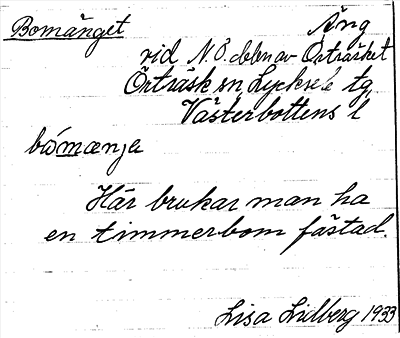 Bomänget Äng
vid N.Ö. delen av Örträsket
Örträsk sn Lycksele tg
Västerbottens l
bómænjə
Här brukar man ha
en timmerbom fästad.
Lisa Lidberg 1933